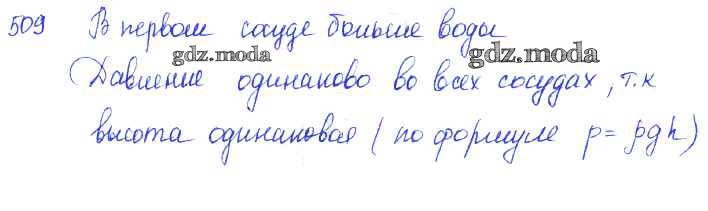 509 В первом сосуде больше воды
gdz.moda gdz.moda
Давление одинаково во всех сосудах, т.к
высота одинаковая (по формуле p = ρgh)